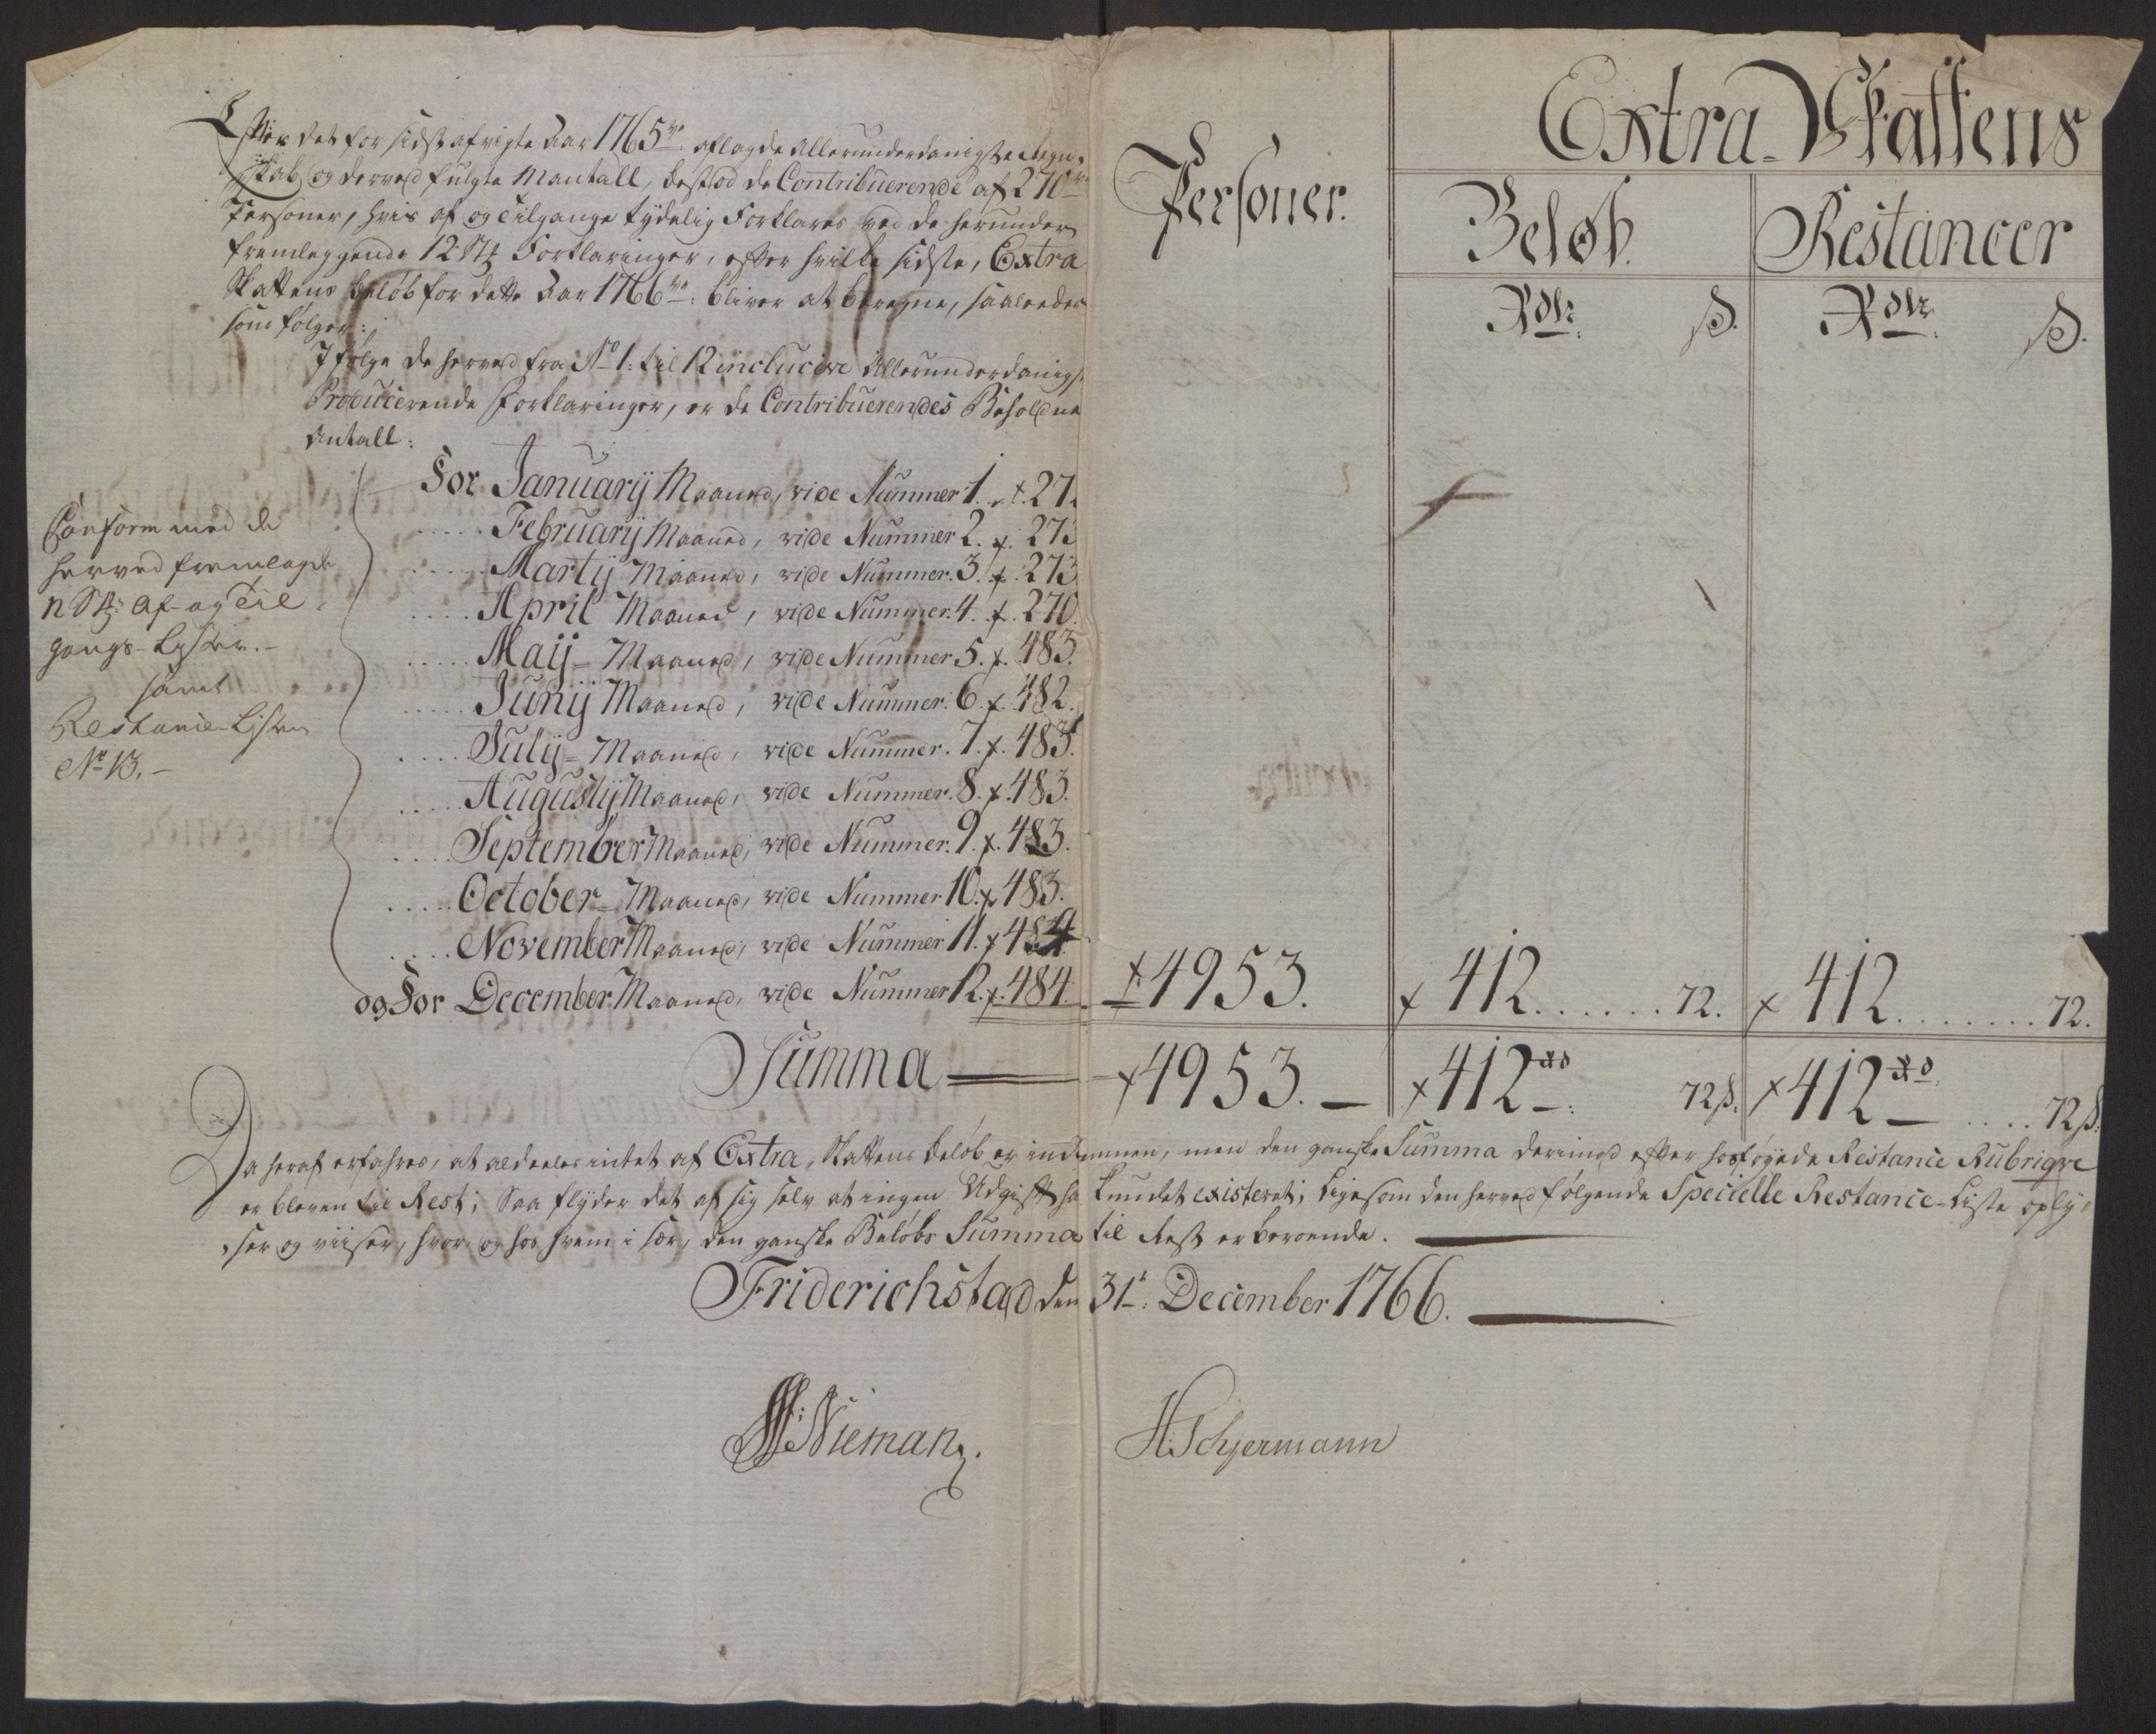 Extra-Skattens
Personer.
Beløb.
Restancer
Rdlr. ß.
Rdlr. ß.
Efter det for sidst afvigte Aar 1765ve aflagde Allerunderdanigste Regn-
skab og derved fulgte Mantall, bestod de Contribuerende af 270ve
Personer, hvis af og Tilgange tydelig Forklares ved de herunder
fremleggende 12 Stk Forklaringer, efter hvilke sidste, Extra
Skattens Beløb for dette Aar 1766ve: bliver at beregne, saaledes
som følger:
I følge de herved fra No 1: til 12 inclucive Allerunderdanigst
Producerende Forklaringer, er de Contribuerendes Befoldne
Antall:
For Januarij Maaned, vide Nummer 1. 27
Februarij Maaned, vide Nummer 2. 273
Martij Maaned, vide Nummer. 3. 273.
April Maaned, vide Nummer. 4. 270.
Maij Maaned, vide Nummer 5. 483.
Junij Maaned, vide Nummer. 6. 482.
Julij Maaned, vide Nummer. 7. 483.
Augustij Maaned, vide Nummer. 8. 483.
September Maaned, vide Nummer. 9. 483.
October Maaned, vide Nummer 10. 483.
November Maaned, vide Nummer 11. 484
og For December Maaned, vide Nummer 12. 484. 4953. 412 . . . . . . 72. 412 . . . . . . . 72.
Conform med de
herved fremlagde
12 Stk: Af- og Til-
gangs-Lister.-
samt
Restance-Listen
No 13.-
Summa 4953.- 412 rd 72 ß. 412 rd . . . . 72 ß.
Da heraf erfahres, at aldeeles intet af Extra, Skattens beløb er indkommen, men den ganske Summa derimod efter hosføyede Restance Rubriqve
er bleven til Rest; Saa flyder det af sig selv at ingen Udgift ha kundet existeret; Ligesom den herved følgende Specielle Restance-Liste oply-
ser og viiser, hvor og hos hvem i sær, den ganske Beløbs Summa til Rest er beroende.
Friderichstad den 31t: December 1766.
Nieman.
H Schjermann